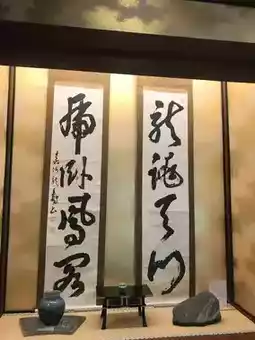 龍跳天門
虎臥鳳閣